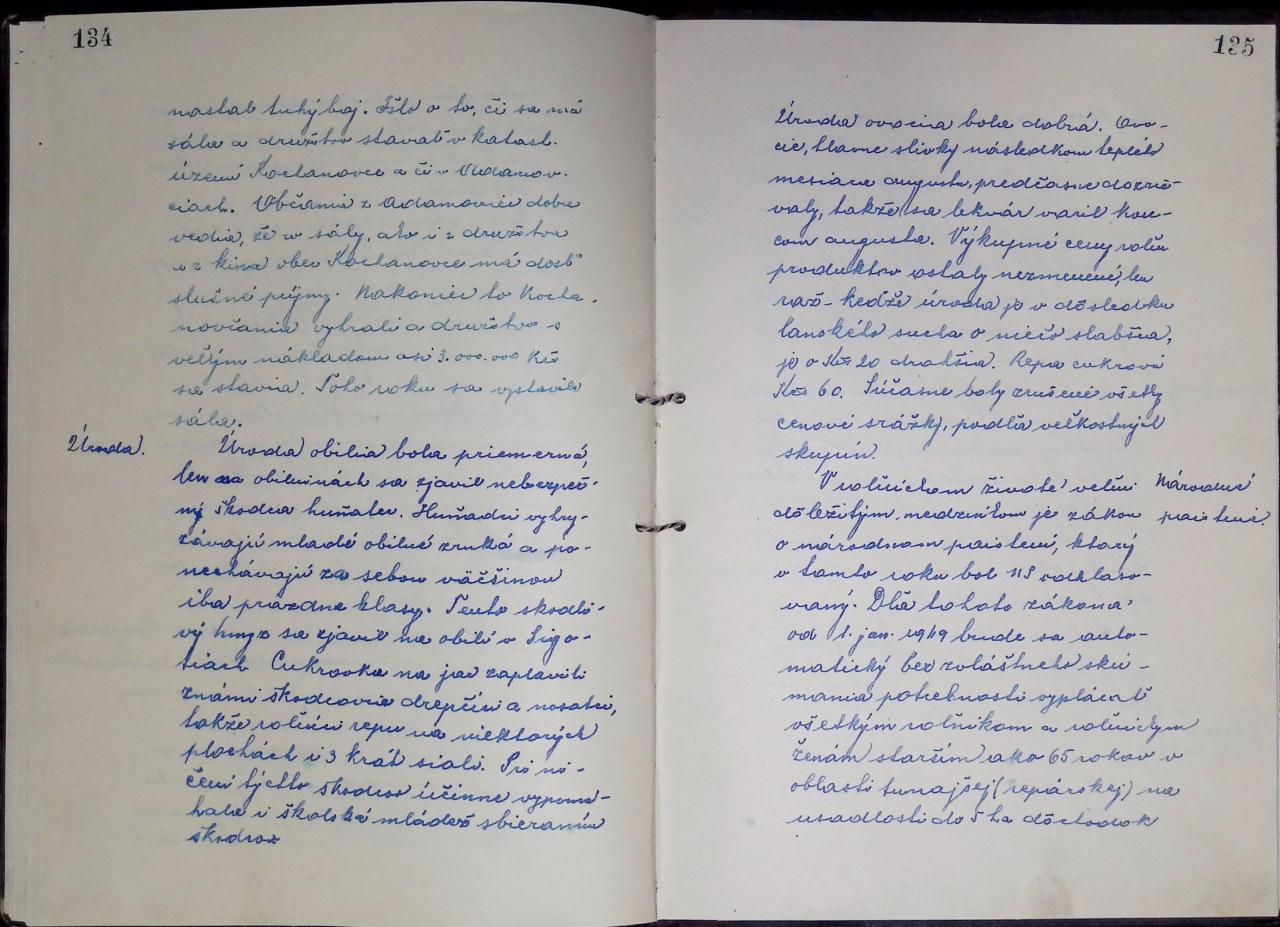 134
nastal tuhý boj. Išlo o to, či sa má
sála a družstvo stavať v katast.
území Kochanovce a či v Adamov-
ciach. Občania z Adamoviec dobre
vedia, že zo sály, ako i z družstva
a z kina obec Kochanovce má dosť
slušné príjmy. Nakoniec to Kocha-
novčania vyhrali a družstvo s
veľkým nákladom asi 3.000.000 Kčs
sa stavia. Toho roku sa vystavila
sála.
Úroda.
Úroda obilia bola priemerná,
len na obilninách sa zjavil nebezpeč-
ný škodca huňatec. Huňadci vyhry-
závajú mladé obilné zrnká a po-
nechávajú za sebou väčšinou
iba prázdne klasy. Tento škodli-
vý hmyz sa zjavil na obilí v Sigo-
tiach Cukrovka na jar zaplavili
známi škodcovia drepčíci a nosatci,
takže roľníci repu na niektorých
plochách i 3 krát siali. Pri ni-
čení týchto škodcov účinne vypomá-
hala i školská mládež sbieraním
škodcov
135
Úroda ovocia bola dobrá. Ovo-
cie, hlavne slivky následkom teplého
mesiaca augusta, predčasne dozrie-
valy, takže sa lekvár varil kon-
com augusta. Výkupné ceny roľn.
produktov ostaly nezmenené, len
raž - keďže úroda je v dôsledku
lanského sucha o niečo slabšia,
je o Kčs 20 drahšia. Repa cukrová
Kčs 60. Súčasne boly zrušené všetky
cenové srážky, podľa veľkostných
skupín.
Národné
poistenie.
V roľníckom živote veľmi
dôležitým medzníkom je zákon
o národnom poistení, ktorý
v tomto roku bol NS odhlaso-
vaný. Dľa tohoto zákona
od 1. jan. 1949 bude sa auto-
maticky bez zvláštneho skú-
mania potrebnosti vyplácať
všetkým roľníkom a roľníckym
ženám starším ako 65 rokov v
oblasti tunajšej (repárskej) na
usadlosti do 5 ha dôchodok